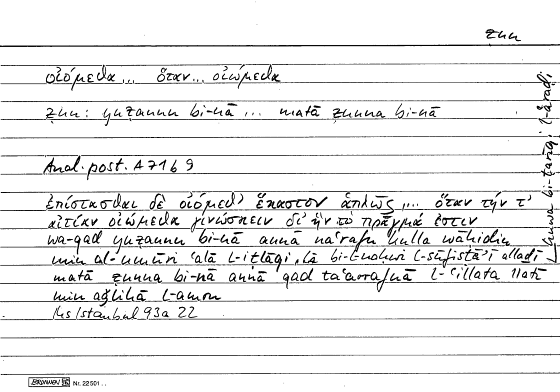 ẓnn
οἰόμεθα ... ὅταν ... οἰώμεθα
ẓnn: yuẓannu bi-nā ... matā ẓunna bi-nā
Anal. post. A 71 b 9
ἐπίστασθαι δὲ οἰόμεθ' ἕκαστον ἁπλῶς, ... ὅταν τήν τ'
αἰτίαν οἰώμεθα γινώσκειν δι' ἣν τὸ πρᾶγμά ἐστιν
wa-qad yuẓannu bi-nā annā naʿrafu kulla wāḥidin
min al-umūri ʿalā l-iṭlāqi, lā bi-l-naḥwi l-sūfisṭāʾī alladī
matā ẓunna bi-nā annā qad taʿarrafnā l-ʿillata llatī
min aǧlihā l-amru
Ms Istanbul 93a 22
huwa bi-ṭarīqi l-ʿaraḍi
BRUNNEN Nr. 22 501